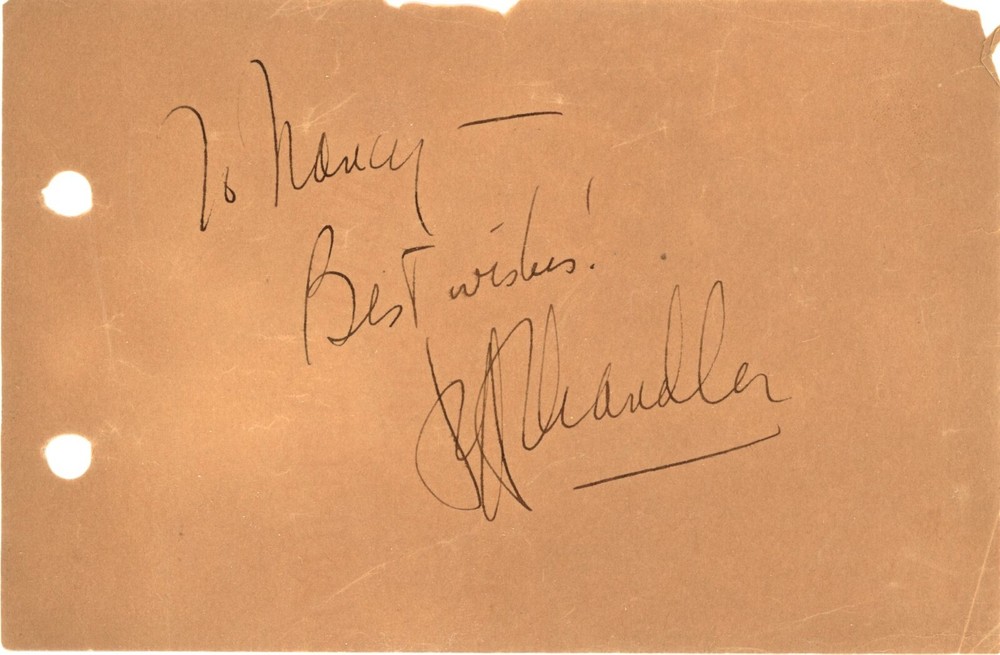 To Nancy —
Best wishes!
Jeff Chandler